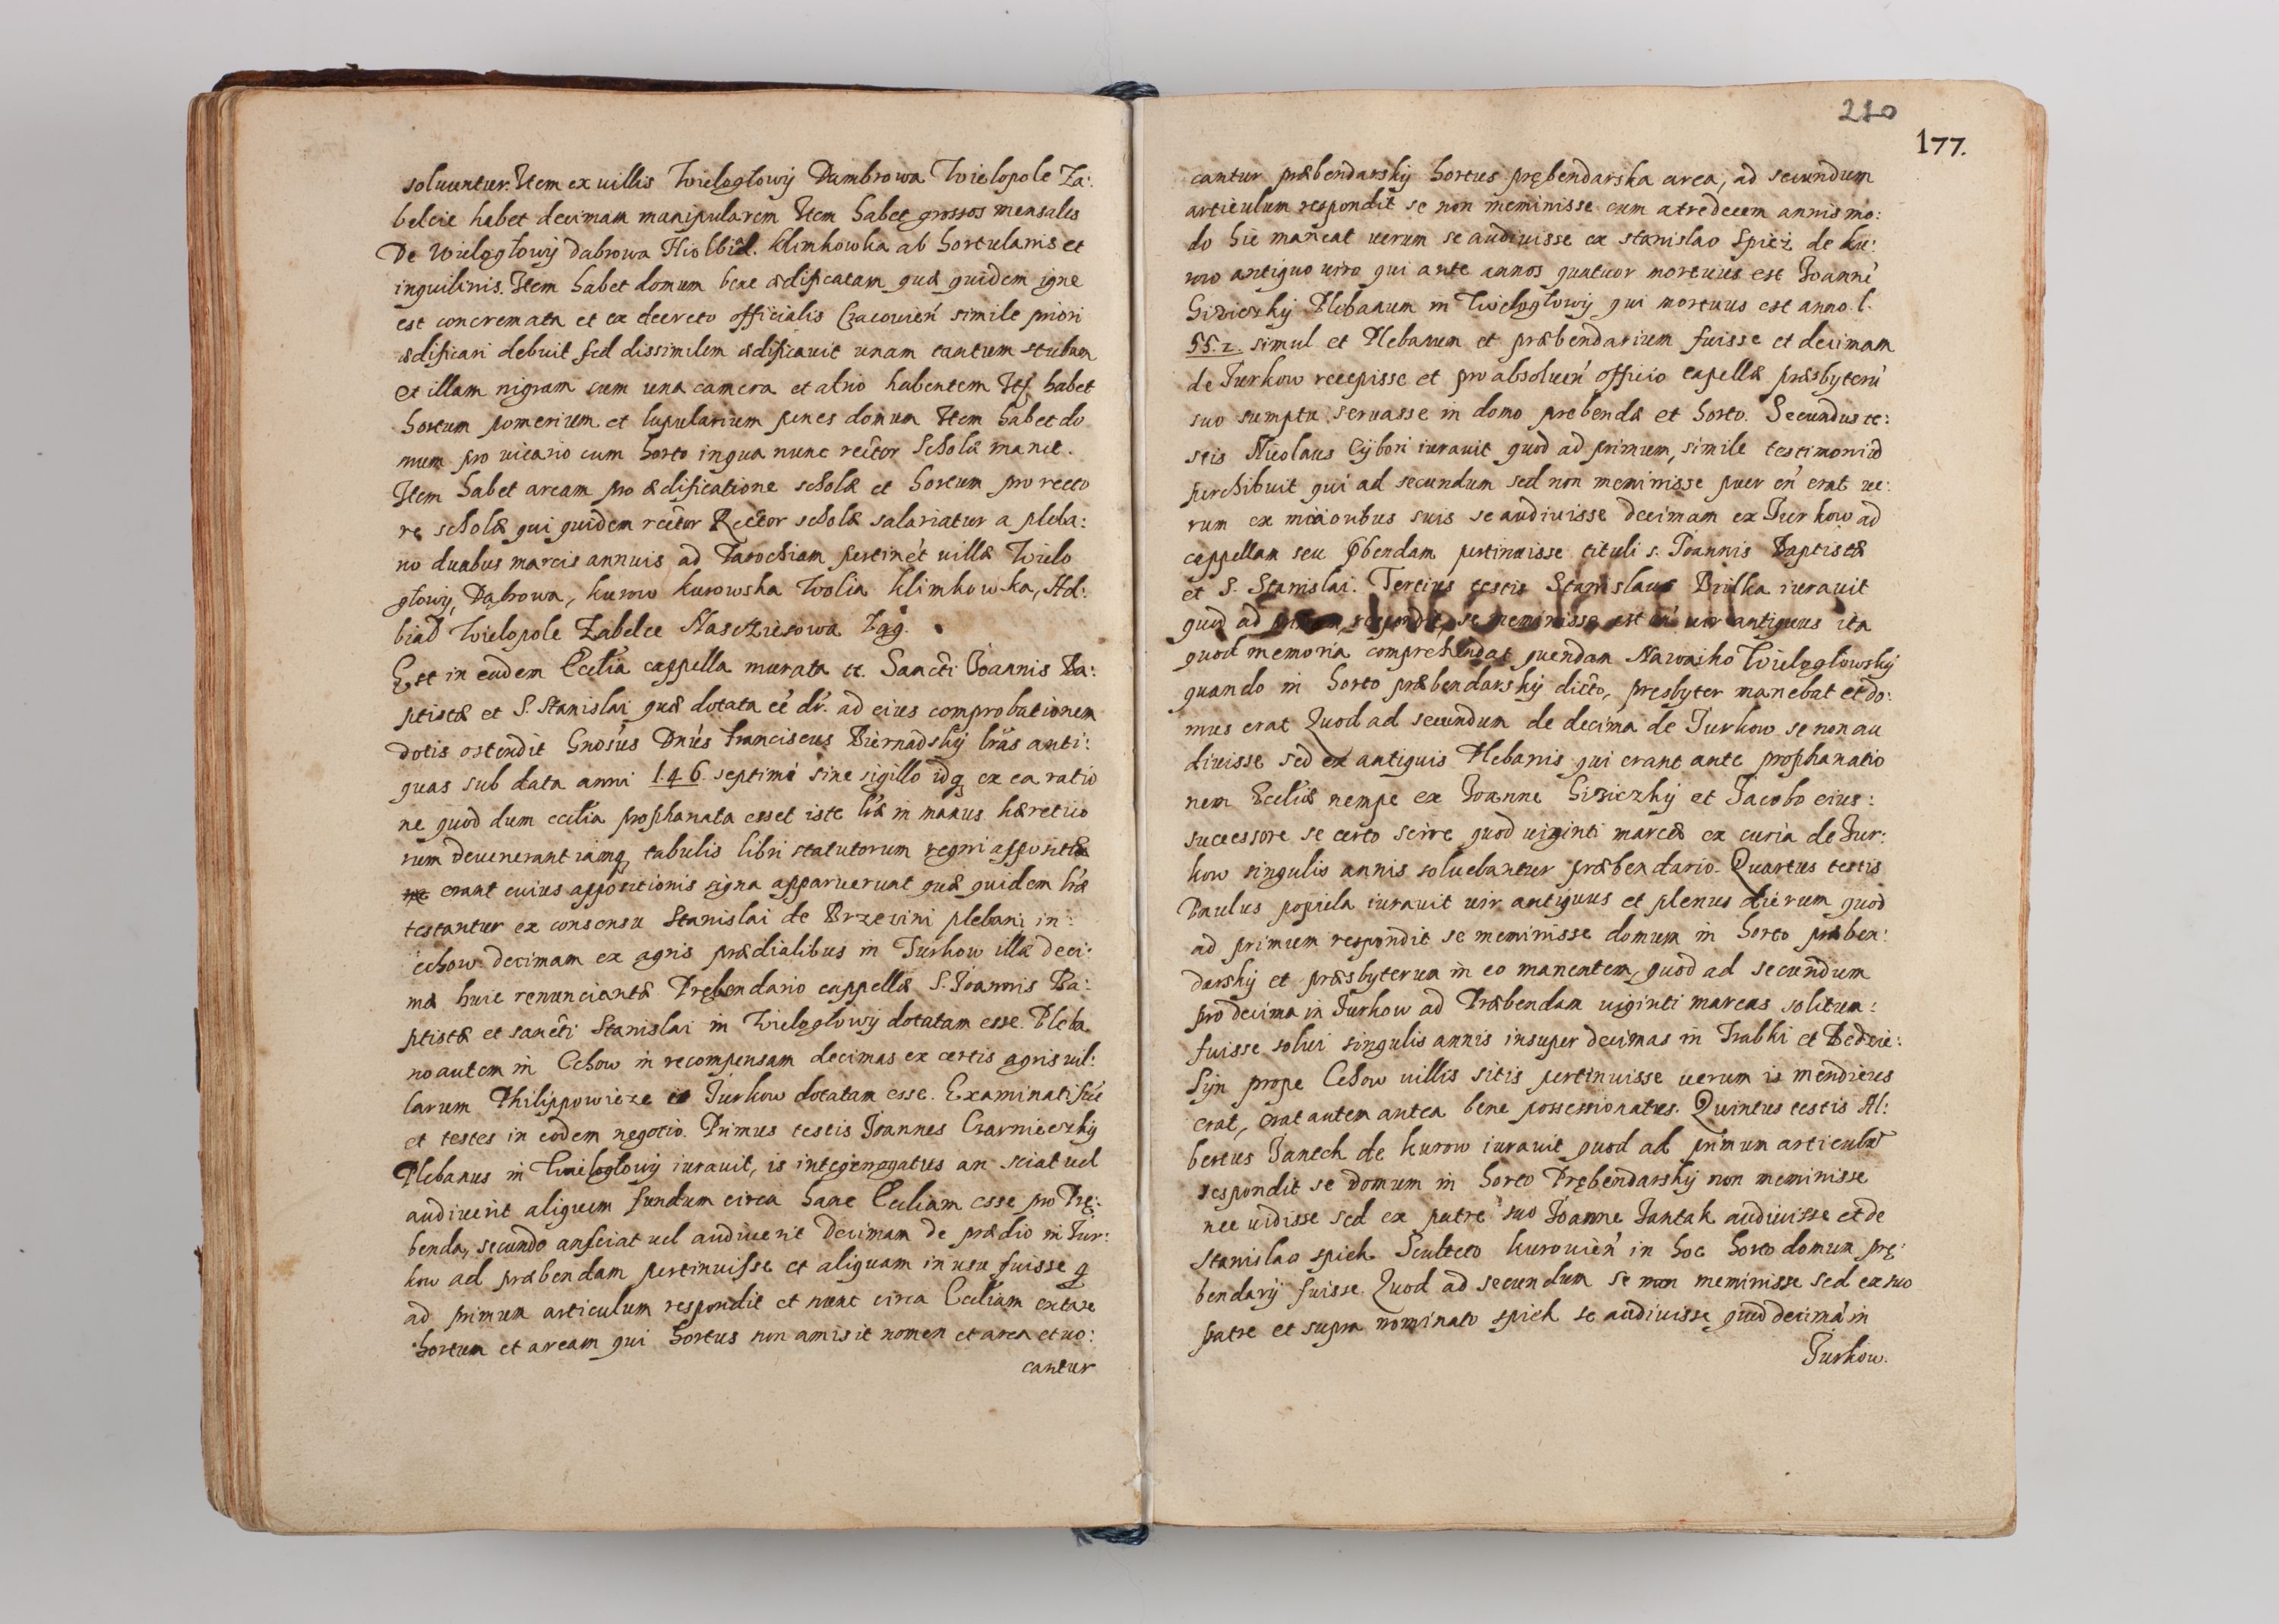 soluuntur. Item ex uillis Wieloglowij Dambrowa Wielopole Za:
belcie habet decimam manipularem Item habet grossos mensales
De Wieloglowij Dabrowa Klimkowka ab hortulanis et
inquilinis. Item habet domum bene ædificatam quæ quidem igne
est concremata et ex decreto officialis Cracouień simile priori
ædificari debuit sed dissimilem ædificauit unam tantum stubam
et illam nigram cum una camera et atrio habentem Itē habet
hortum pomerium et lupularium penes domum Item habet do
mum pro uicario cum horto in qua nunc rector scholæ manet.
Item habet aream pro ædificatione scholæ et hortum pro recto
re scholæ qui quidem rector Rector scholæ salariatur a pleba:
no duabus marcis annuis ad Parochiam pertinēt uillæ Wielo
glowij, Dąbrowa, kurow kurowska Wolia klimkowka, Hel:
biad Wielopole Zabelce Nasczieszowa
Est in eadem Ecclīa cappella murata tt. Sancti Joannis Ba:
ptistæ et S. Stanislai quæ dotata eē dr̄. ad eius comprobationem
dotis ostendit Gnōsus Dnūs franciscus Biernadskij lrās anti:
quas sub data anni 1.4.6. septimi sine sigillo idq; ex ea ratio
ne quod dum ecclīa prophanata esset iste lræ in manus hæretico
rum deuenerant iamq; tabulis libri statutorum regni appositæ
erant cuius appositionis signa apparuerunt quæ quidem lræ
testantur ex consensu Stanislai de Brzezini plebani in:
cchow decimam ex agris prædialibus in Jurkow illæ deci:
mæ huic renunciantæ Prębendario cappellæ S. Joannis Ba:
ptistæ et sancti Stanislai in Wieloglowij dotatam esse. Pleba
no autem in Cchow in recompensam decimas ex certis agris uil:
larum Philippowicze et Jurkow dotatam esse. Examinati sūt
et testes in eodem negotio. Primus testis Joannes Czarnieczkij
Plebanus in Wieloglowij iurauit, is interrogatus an sciat uel
audiuerit aliquem fundum circa hanc Eccliam esse pro Prę:
benda, secundo an sciat uel audiuerit decimam de prædio in Jur:
kow ad præbendam pertinuisse et aliquam in usu fuisse q
ad primum articulum respondit et nunc circa Eccliam extare
hortum et aream qui hortus non amisit nomen et area et uo:
cantur
210
177.
cantur præbendarskij hortus prębendarska area, ad secundum
articulum respondit se non meminisse cum a tredecem annis mo:
do hic maneat uerum se audiuisse ex stanislao Spiez de ku:
row antiquo uiro qui ante annos quatuor mortuus est Joannē
Giziczkij Plebanum in Wieloglowij qui mortuus est anno. 1.
55.2. simul et Plebanum et præbendarium fuisse et decimam
de Jurkow recepisse et pro absoluēn officio capellæ præsbyterū
suo sumptu seruasse in domo prebendæ et horto. Secundus te:
stis Nicolaus Cijbori iurauit quod ad primum, simile testimoniū
perchibuit qui ad secundum sed non meminisse puer en̄ erat ue:
rum ex maioribus suis se audiuisse decimam ex Jurkow ad
cappellam seu p̄bendam pertinuisse tituli s. Joannis Baptistæ
et S. Stanislai. Tertius testis Stanislaus Brilka iurauit
quod ad primum, respondit, se meminisse est en̄ uir antiquus ita
quod memoria comprehendat quendam Nawoiho Wieloglowskij
quando in horto præbendarskij dicto, presbyter manebat et do:
mus erat Quod ad secundum de decima de Jurkow se non au
diuisse sed ex antiquis Plebanis qui erant ante prophanatio
nem Eccliæ nempe ex Joanne Giziczkij et Jacobo eius:
successore se certo scire quod uiginti marcæ ex curia de Jur:
kow singulis annis soluebantur præbendario. Quartus testis
Paulus popiela iurauit uir antiquus et plenus dierum quod
ad primum respondit se meminisse domum in horto præben:
darskij et præsbyterum in eo manentem, quod ad secundum
pro decima in Jurkow ad Præbendam uiginti marcas solitum:
fuisse solui singulis annis insuper decimas in Trabki et Bedzie:
sijn prope Cchow uillis sitis pertinuisse uerum is mendicus
erat, erat autem antea bene possessionatus. Quintus testis Al:
bertus Janech de kurow iurauit quod ad primum articulū
respondit se domum in horto Prębendarskij non meminisse
nec uidisse sed ex patre suo Joanne Jantak audiuisse et de
Stanislao spiek Sculteto kurouień in hoc horto domum prę:
bendarij fuisse. Quod ad secundum se non meminisse sed ex suo
patre et supra nominato spiek se audiuisse quod decimā in
Jurkow.